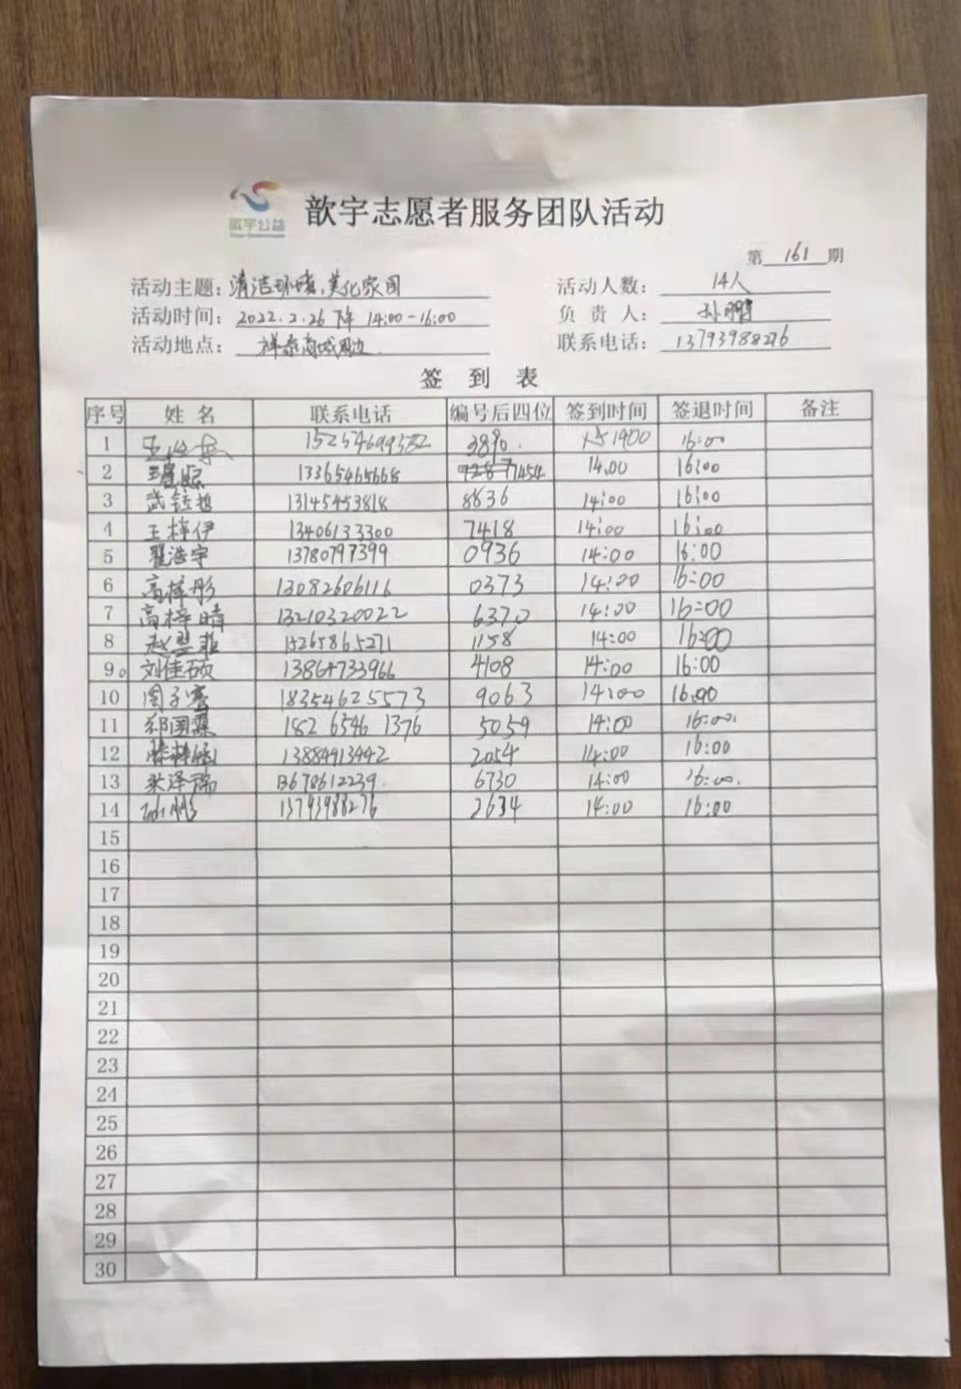 歆宇公益
歆宇志愿者服务团队活动
第 161 期
活动主题：清洁环境，美化家园
活动人数：14人
活动时间：2022.2.26 下午 14:00-16:00
负责人：孙鹏
活动地点：祥泰商城周边
联系电话：13793988276
签 到 表
序号 姓名 联系电话 编号后四位 签到时间 签退时间 备注
1 15254699582 3890. 16:00
2 13365465668 1454 14:00 16:00
3 13145453818 8836 14:00 16:00
4 王梓伊 13406133300 7418 14:00 16:00
5 翟浩宇 13780797399 0936 14:00 16:00
6 高梓彤 13082606116 0373 14:00 16:00
7 高梓晴 13210320022 6370 14:00 16:00
8 15265865271 1158 14:00 16:00
9 刘佳硕 13864733966 4108 14:00 16:00
10 18354625573 9063 14:00 16:00
11 182 6546 1376 5059 14:00 16:00.
12 13884913442 2054 14:00 16:00
13 13678612239. 6730 14:00 16:00.
14 13793988276 2634 14:00 16:00
15
16
17
18
19
20
21
22
23
24
25
26
27
28
29
30